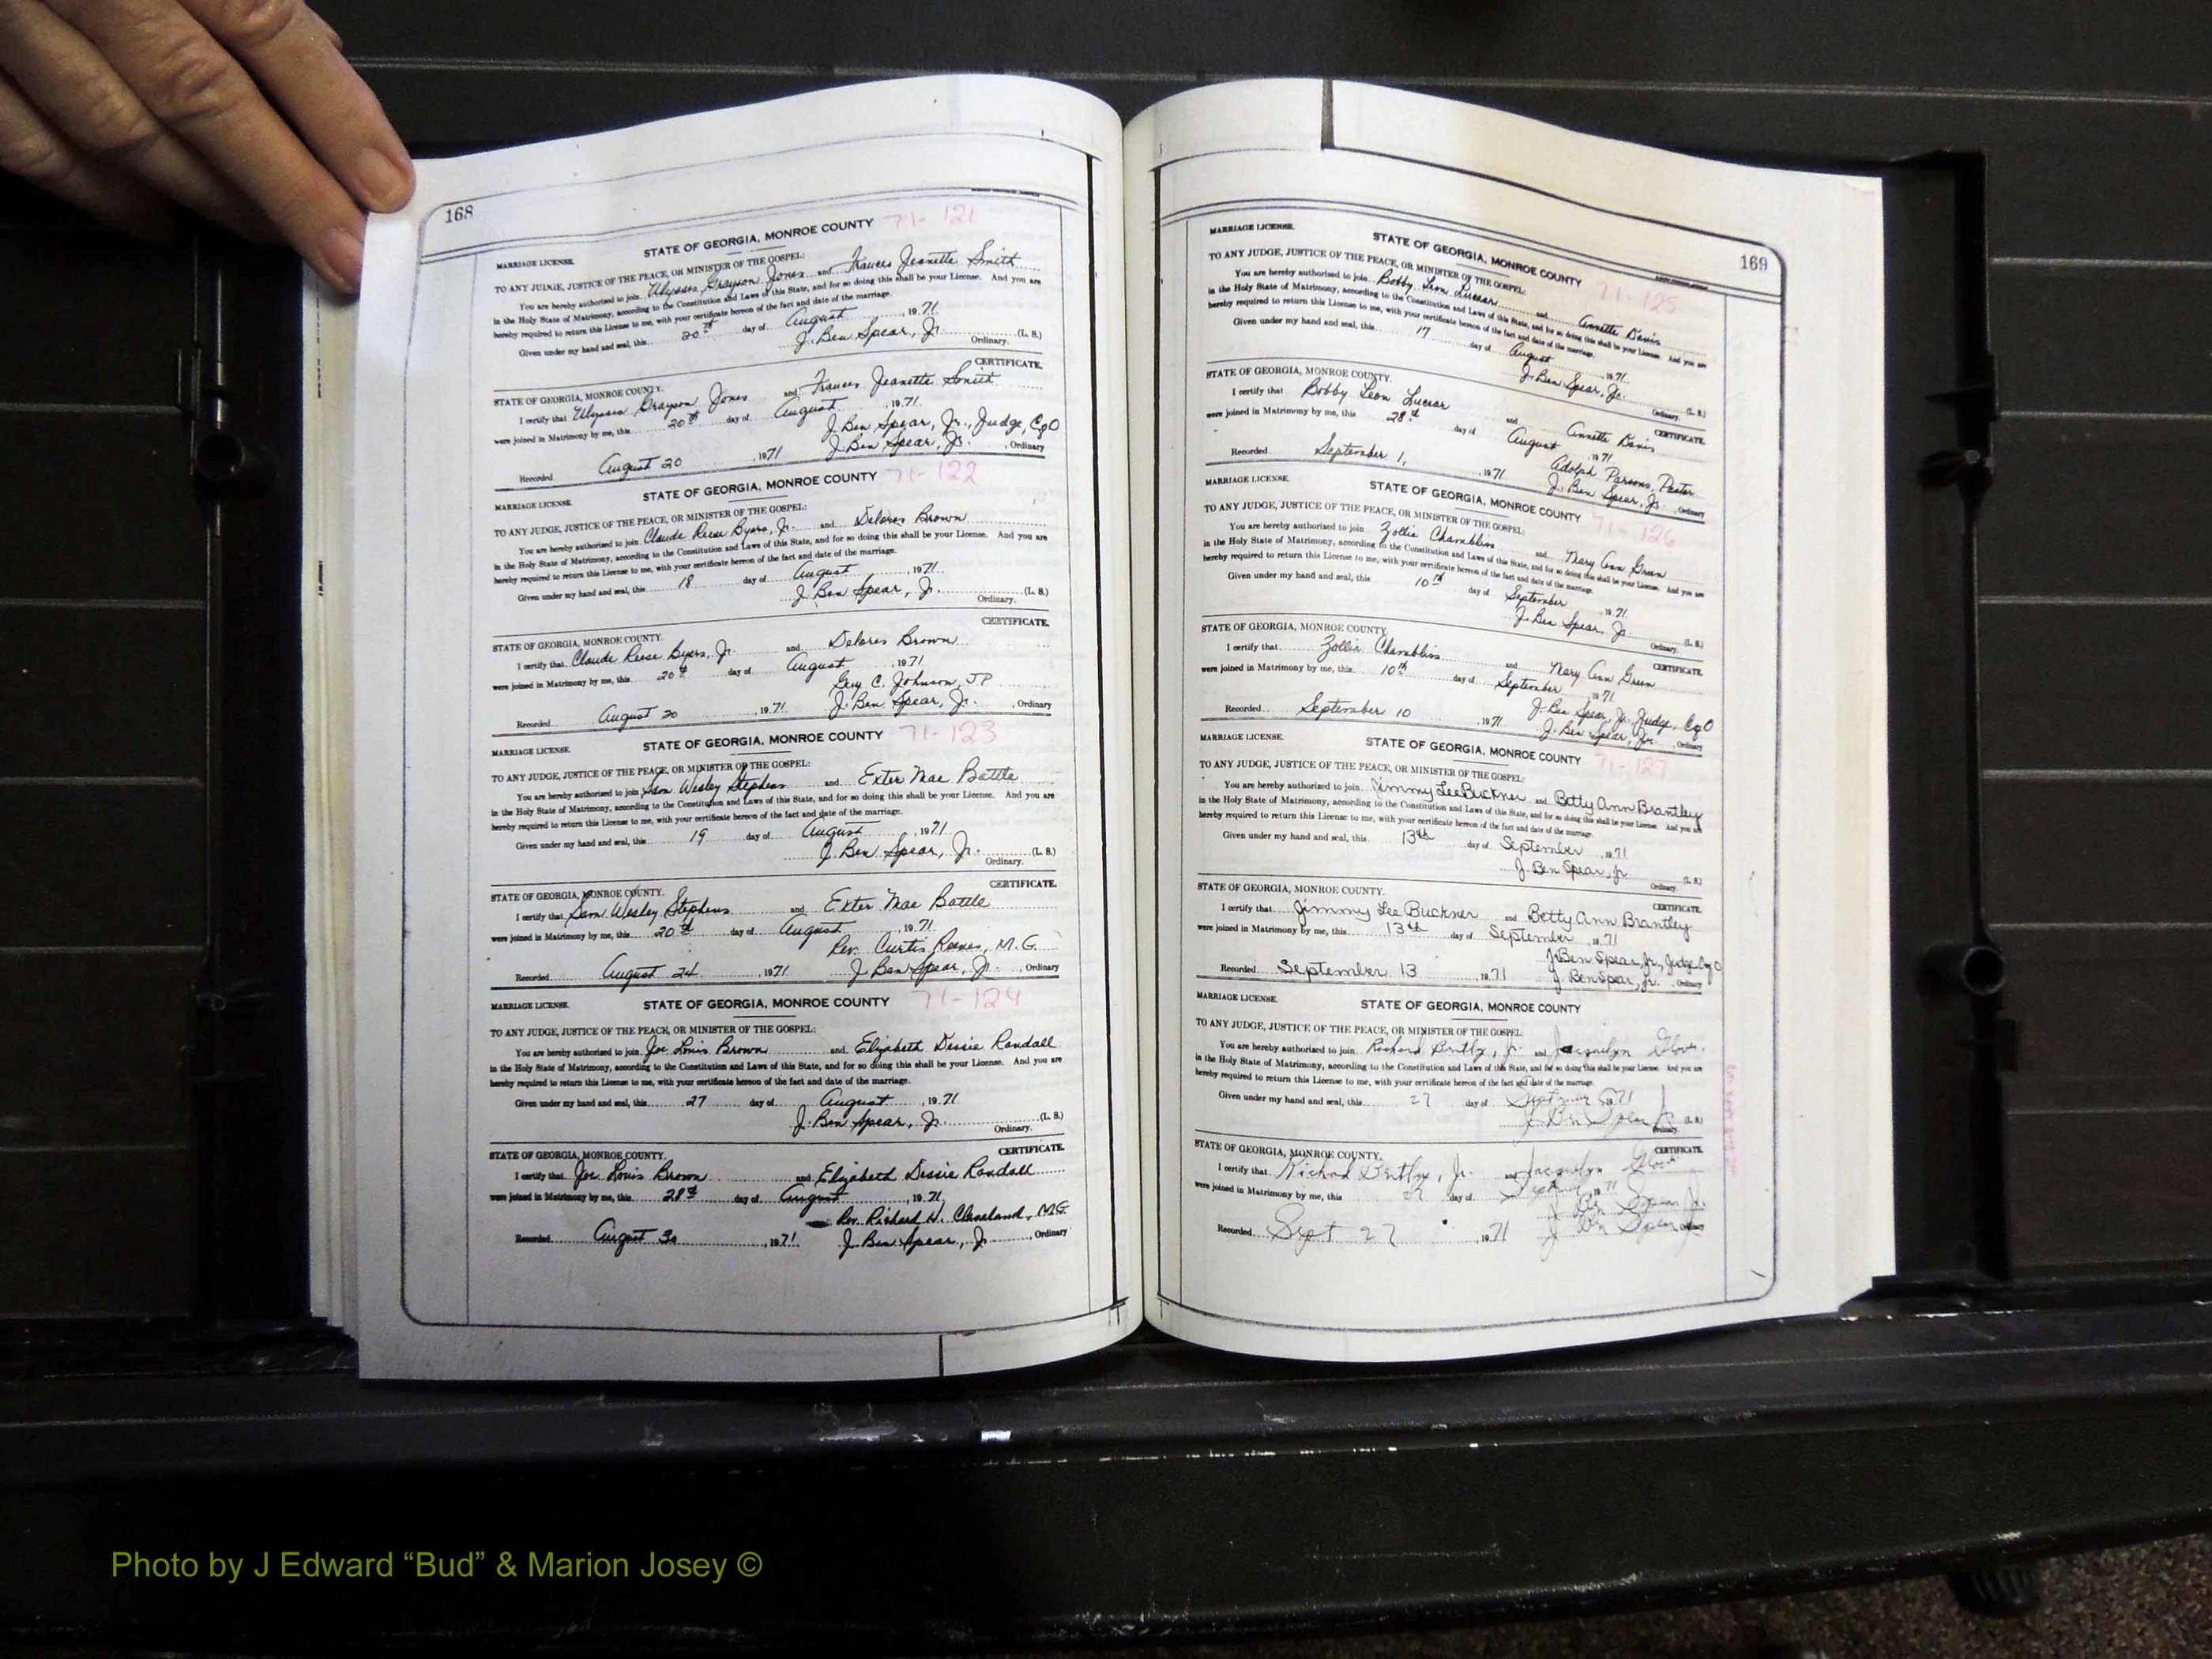 168
71-121
STATE OF GEORGIA, MONROE COUNTY
MARRIAGE LICENSE.
TO ANY JUDGE, JUSTICE OF THE PEACE, OR MINISTER OF THE GOSPEL:
You are hereby authorized to join Ulysses Grayson Jones and Frances Jeanette Smith
in the Holy State of Matrimony, according to the Constitution and Laws of this State, and for so doing this shall be your License. And you are
hereby required to return this License to me, with your certificate hereon of the fact and date of the marriage.
Given under my hand and seal, this 20th day of August, 1971
J. Ben Spear, Jr. (L. S.)
Ordinary.
CERTIFICATE.
STATE OF GEORGIA, MONROE COUNTY.
I certify that Ulysses Grayson Jones and Frances Jeanette Smith
were joined in Matrimony by me, this 20th day of August, 1971
J. Ben Spear, Jr., Judge, CgO
Recorded August 20, 1971 J. Ben Spear, Jr., Ordinary
71-122
STATE OF GEORGIA, MONROE COUNTY
MARRIAGE LICENSE.
TO ANY JUDGE, JUSTICE OF THE PEACE, OR MINISTER OF THE GOSPEL:
You are hereby authorized to join Claude Reese Byers, Jr. and Delores Brown
in the Holy State of Matrimony, according to the Constitution and Laws of this State, and for so doing this shall be your License. And you are
hereby required to return this License to me, with your certificate hereon of the fact and date of the marriage.
Given under my hand and seal, this 18 day of August, 1971
J. Ben Spear, Jr. (L. S.)
Ordinary.
CERTIFICATE.
STATE OF GEORGIA, MONROE COUNTY.
I certify that Claude Reese Byers, Jr. and Delores Brown
were joined in Matrimony by me, this 20th day of August, 1971
Guy C. Johnson, J.P.
Recorded August 20, 1971 J. Ben Spear, Jr., Ordinary
71-123
STATE OF GEORGIA, MONROE COUNTY
MARRIAGE LICENSE.
TO ANY JUDGE, JUSTICE OF THE PEACE, OR MINISTER OF THE GOSPEL:
You are hereby authorized to join Sam Wesley Stephens and Exter Mae Battle
in the Holy State of Matrimony, according to the Constitution and Laws of this State, and for so doing this shall be your License. And you are
hereby required to return this License to me, with your certificate hereon of the fact and date of the marriage.
Given under my hand and seal, this 19 day of August, 1971
J. Ben Spear, Jr. (L. S.)
Ordinary.
CERTIFICATE.
STATE OF GEORGIA, MONROE COUNTY.
I certify that Sam Wesley Stephens and Exter Mae Battle
were joined in Matrimony by me, this 20th day of August, 1971
Rev. Curtis Reeves, M.G.
Recorded August 24, 1971 J. Ben Spear, Jr., Ordinary
71-124
MARRIAGE LICENSE. STATE OF GEORGIA, MONROE COUNTY
TO ANY JUDGE, JUSTICE OF THE PEACE, OR MINISTER OF THE GOSPEL:
You are hereby authorized to join Joe Louis Brown and Elizabeth Dessie Randall
in the Holy State of Matrimony, according to the Constitution and Laws of this State, and for so doing this shall be your License. And you are
hereby required to return this License to me, with your certificate hereon of the fact and date of the marriage.
Given under my hand and seal, this 27 day of August, 1971
J. Ben Spear, Jr. (L. S.)
Ordinary.
CERTIFICATE.
STATE OF GEORGIA, MONROE COUNTY.
I certify that Joe Louis Brown and Elizabeth Dessie Randall
were joined in Matrimony by me, this 28th day of August, 1971
Rev. Richard W. Cleveland, M.G.
Recorded August 30, 1971 J. Ben Spear, Jr., Ordinary
169
MARRIAGE LICENSE.
STATE OF GEORGIA, MONROE COUNTY
71-125
TO ANY JUDGE, JUSTICE OF THE PEACE, OR MINISTER OF THE GOSPEL:
You are hereby authorized to join Bobby Leon Lucear and Annette Davis
in the Holy State of Matrimony, according to the Constitution and Laws of this State, and for so doing this shall be your License. And you are
hereby required to return this License to me, with your certificate hereon of the fact and date of the marriage.
Given under my hand and seal, this 17 day of August, 1971
J. Ben Spear, Jr. (L. S.)
Ordinary.
CERTIFICATE.
STATE OF GEORGIA, MONROE COUNTY.
I certify that Bobby Leon Lucear and Annette Davis
were joined in Matrimony by me, this 28th day of August, 1971
Adolph Parsons, Pastor
Recorded September 1, 1971 J. Ben Spear, Jr., Ordinary
MARRIAGE LICENSE.
STATE OF GEORGIA, MONROE COUNTY
71-126
TO ANY JUDGE, JUSTICE OF THE PEACE, OR MINISTER OF THE GOSPEL:
You are hereby authorized to join Zollie Chambliss and Mary Ann Green
in the Holy State of Matrimony, according to the Constitution and Laws of this State, and for so doing this shall be your License. And you are
hereby required to return this License to me, with your certificate hereon of the fact and date of the marriage.
Given under my hand and seal, this 10th day of September, 1971
J. Ben Spear, Jr. (L. S.)
Ordinary.
CERTIFICATE.
STATE OF GEORGIA, MONROE COUNTY.
I certify that Zollie Chambliss and Mary Ann Green
were joined in Matrimony by me, this 10th day of September, 1971
J. Ben Spear, Jr. Judge, CgO
Recorded September 10, 1971 J. Ben Spear, Jr., Ordinary
MARRIAGE LICENSE.
STATE OF GEORGIA, MONROE COUNTY
71-127
TO ANY JUDGE, JUSTICE OF THE PEACE, OR MINISTER OF THE GOSPEL:
You are hereby authorized to join Jimmy Lee Buckner and Betty Ann Brantley
in the Holy State of Matrimony, according to the Constitution and Laws of this State, and for so doing this shall be your License. And you are
hereby required to return this License to me, with your certificate hereon of the fact and date of the marriage.
Given under my hand and seal, this 13th day of September, 1971
J. Ben Spear, Jr. (L. S.)
Ordinary.
CERTIFICATE.
STATE OF GEORGIA, MONROE COUNTY.
I certify that Jimmy Lee Buckner and Betty Ann Brantley
were joined in Matrimony by me, this 13th day of September, 1971
J. Ben Spear, Jr., Judge CgO
Recorded September 13, 1971 J. Ben Spear, Jr., Ordinary
MARRIAGE LICENSE.
STATE OF GEORGIA, MONROE COUNTY
TO ANY JUDGE, JUSTICE OF THE PEACE, OR MINISTER OF THE GOSPEL:
You are hereby authorized to join Richard, Jr. and
in the Holy State of Matrimony, according to the Constitution and Laws of this State, and for so doing this shall be your License. And you are
hereby required to return this License to me, with your certificate hereon of the fact and date of the marriage.
Given under my hand and seal, this 27 day of 1971
J. Ben Spear Jr. (L. S.)
Ordinary.
CERTIFICATE.
STATE OF GEORGIA, MONROE COUNTY.
I certify that Richard, Jr. and
were joined in Matrimony by me, this 27 day of 1971
J Ben Spear Jr.
Recorded Sept 27, 1971 J Ben Spear Jr Ordinary
Photo by J Edward “Bud” & Marion Josey ©